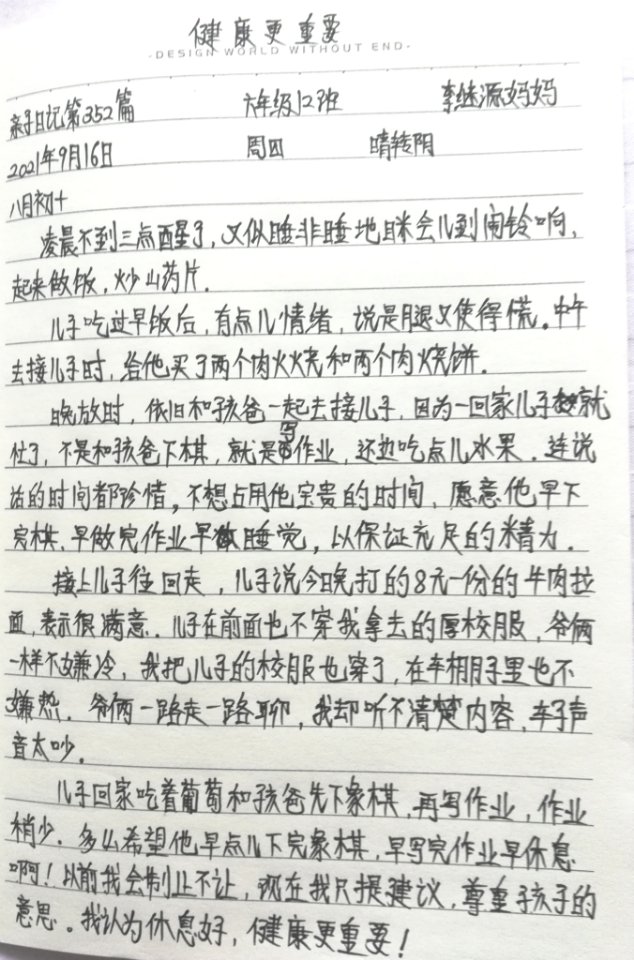 健康更重要
·DESIGN WORLD WITHOUT END·
亲子日记第352篇 六年级12班 李继源妈妈
2021年9月16日 周四 晴转阴
八月初十
凌晨不到三点醒了，又似睡非睡地眯会儿到闹铃响，
起来做饭，炒山药片。
儿子吃过早饭后，有点儿情绪，说是腿又使得慌。中午
去接儿子时，给他买了两个肉火烧和两个肉烧饼。
晚放时，依旧和孩爸一起去接儿子，因为一回家儿子就
忙了，不是和孩爸下棋，就是写作业，还边吃点儿水果。连说
话的时间都珍惜，不想占用他宝贵的时间，愿意他早下
完棋、早做完作业早睡觉，以保证充足的精力。
接上儿子往回走，儿子说今晚打的8元一份的牛肉拉
面，表示很满意。儿子在前面也不穿我拿去的厚校服，爷俩
一样不嫌冷，我把儿子的校服也穿了，在车棚子里也不
嫌热。爷俩一路走一路聊，我却听不清楚内容，车子声
音太吵。
儿子回家吃着葡萄和孩爸先下象棋，再写作业，作业
稍少。多么希望他早点儿下完象棋，早写完作业早休息
啊！以前我会制止不让，现在我只提建议，尊重孩子的
意思。我认为休息好，健康更重要！